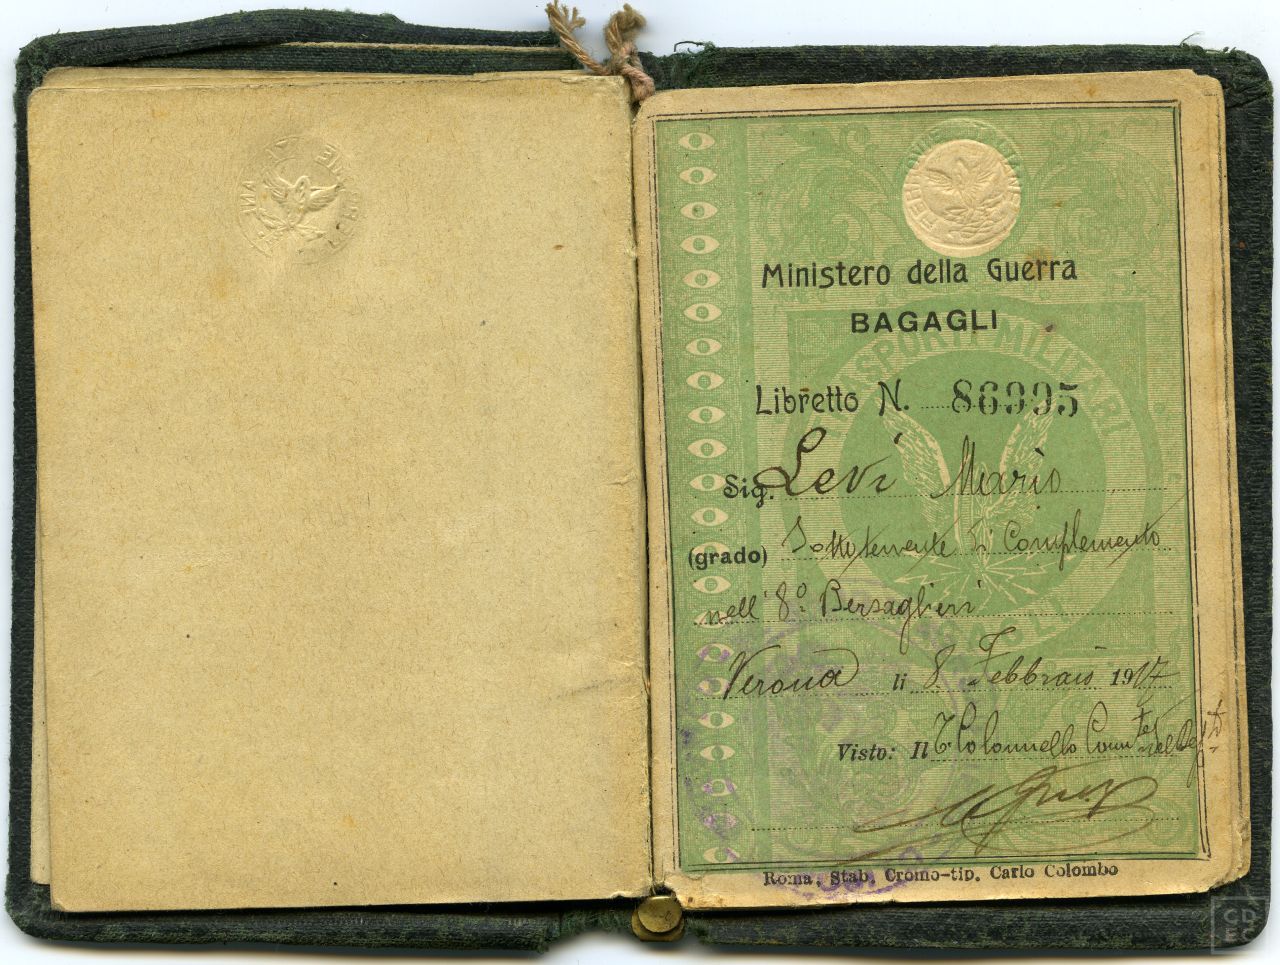 Ministero della Guerra
BAGAGLI
TRASPORTI MILITARI
Libretto N. 86995
Sig. Levi Mario
(grado) Sottotenente di Complemento
nell' 8º Bersaglieri
Verona li 8 Febbraio 1917
Visto: Il T. Colonnello Com.te del Dep.to
Roma, Stab. Cromo-tip. Carlo Colombo
CDEC